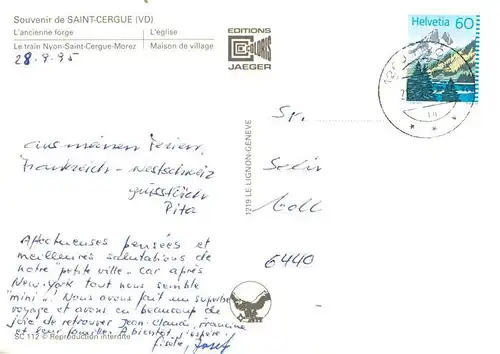 Souvenir de SAINT-CERGUE (VD)
L'ancienne forge
L'église
Le train Nyon-Saint-Cergue-Morez
Maison de village
28.9.95
EDITIONS
JAEGER
Helvetia 60
1219 LE LIGNON-GENEVE
aus meinen Ferien,
Frankreich - Westschweiz
grüsst Dich
Pita
Sr.
6440
Affectueuses pensées et
meilleures salutations de
notre "petite ville" car après
New-York tout nous semble
"mini"! Nous avons fait un superbe
voyage et avons eu beaucoup de
joie de retrouver Jean-Claude, Francine
et leur famille. A bientôt, j'espère,
Josef
SC 112 © Reproduction interdite